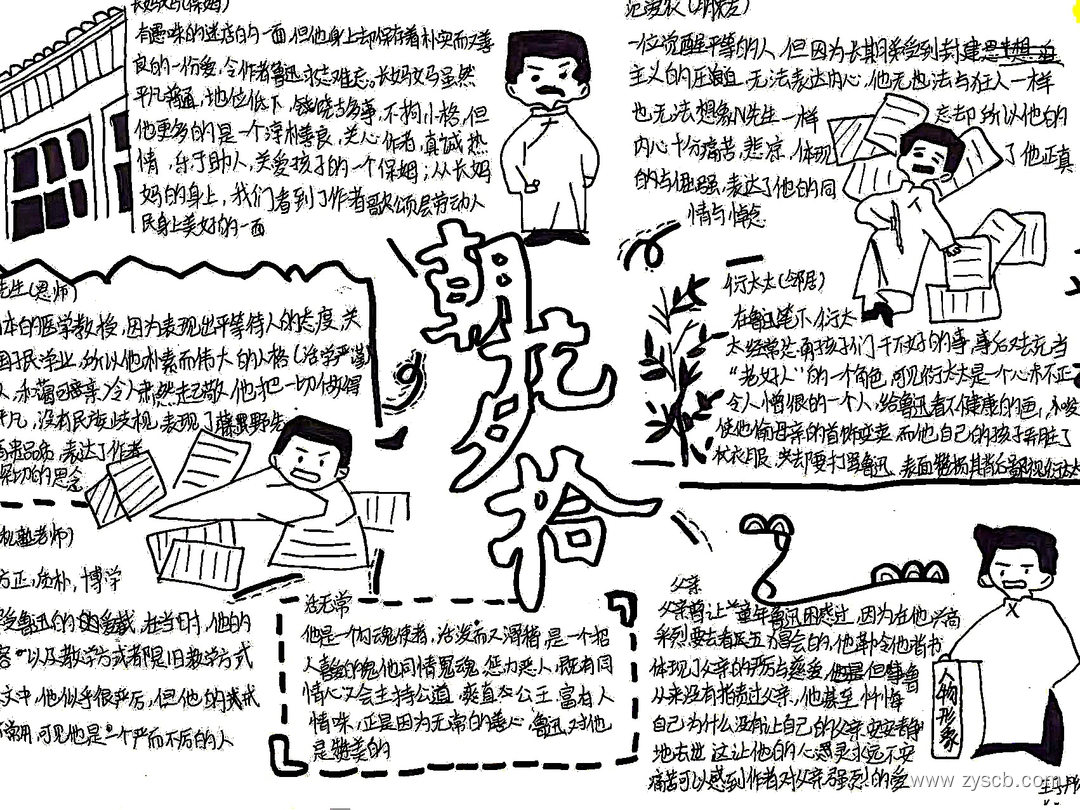 长妈妈(保姆)
有愚昧的迷信的一面,但他身上却保存着朴实而又善
良的一份爱,令作者鲁迅永志难忘。长妈妈虽然
平凡普通,地位低下,饶舌多事,不拘小格,但
他更多的是一个淳朴善良,关心作者,真诚热
情,乐于助人,关爱孩子的一个保姆;从长妈
妈的身上,我们看到了作者歌颂层劳动人
民身上美好的一面
范爱农(朋友)
一位觉醒平等的人,但因为长期受到封建
主义的压迫,无法表达内心,他无也法与狂人一样
也无法想象N先生一样 忘却 所以他的
内心十分痛苦,悲凉,体现 了他正真
的与倔强,表达了他的同
情与悼念
先生(恩师)
本的医学教授,因为表现出平等待人的态度,关
国民学业,所以他朴素而伟大的人格(治学严谨)
人,和蔼可亲)令人肃然起敬,他把一切小做得
平凡,没有民族歧视,表现了藤野先
高贵品质,表达了作者
深切的思念
朝花夕拾
衍太太(邻居)
在鲁迅笔下,衍太
太经常怂恿孩子们干不好的事,事后又去充当
“老好人”的一个角色,可见衍太太是一个心术不正
令人憎恨的一个人,给鲁迅看不健康的画,
使他偷母亲的首饰变卖,而他自己的孩子弄脏了
衣服
私塾老师)
方正,质朴,博学
受鲁迅的爱戴,在当时,他的
容”以及教学方式者都是旧教学方式
文中,他似乎很严厉,但他的戒
不常用,可见他是个严而不厉的人
活无常
他是一个勾魂使者,活泼而又滑稽,是一个招
人喜爱的鬼他同情冤魂,惩办恶人,既有同
情心又会主持公道,爽直公正.富有人
情味,正是因为无常的善心,鲁迅对他
是赞美的
父亲
父亲曾让童年鲁迅困惑过,因为在他兴高
采烈要去看五会的,他勒令他背书
体现了父亲的严厉与慈爱,但鲁
从来没有指责过父亲,他甚至忏悔
自己为什么没有让自己的父亲安安静静
地去世 这让他的心灵永远不安
痛苦可以感到作者对父亲强烈的爱
人物形象
www.zyscb.com